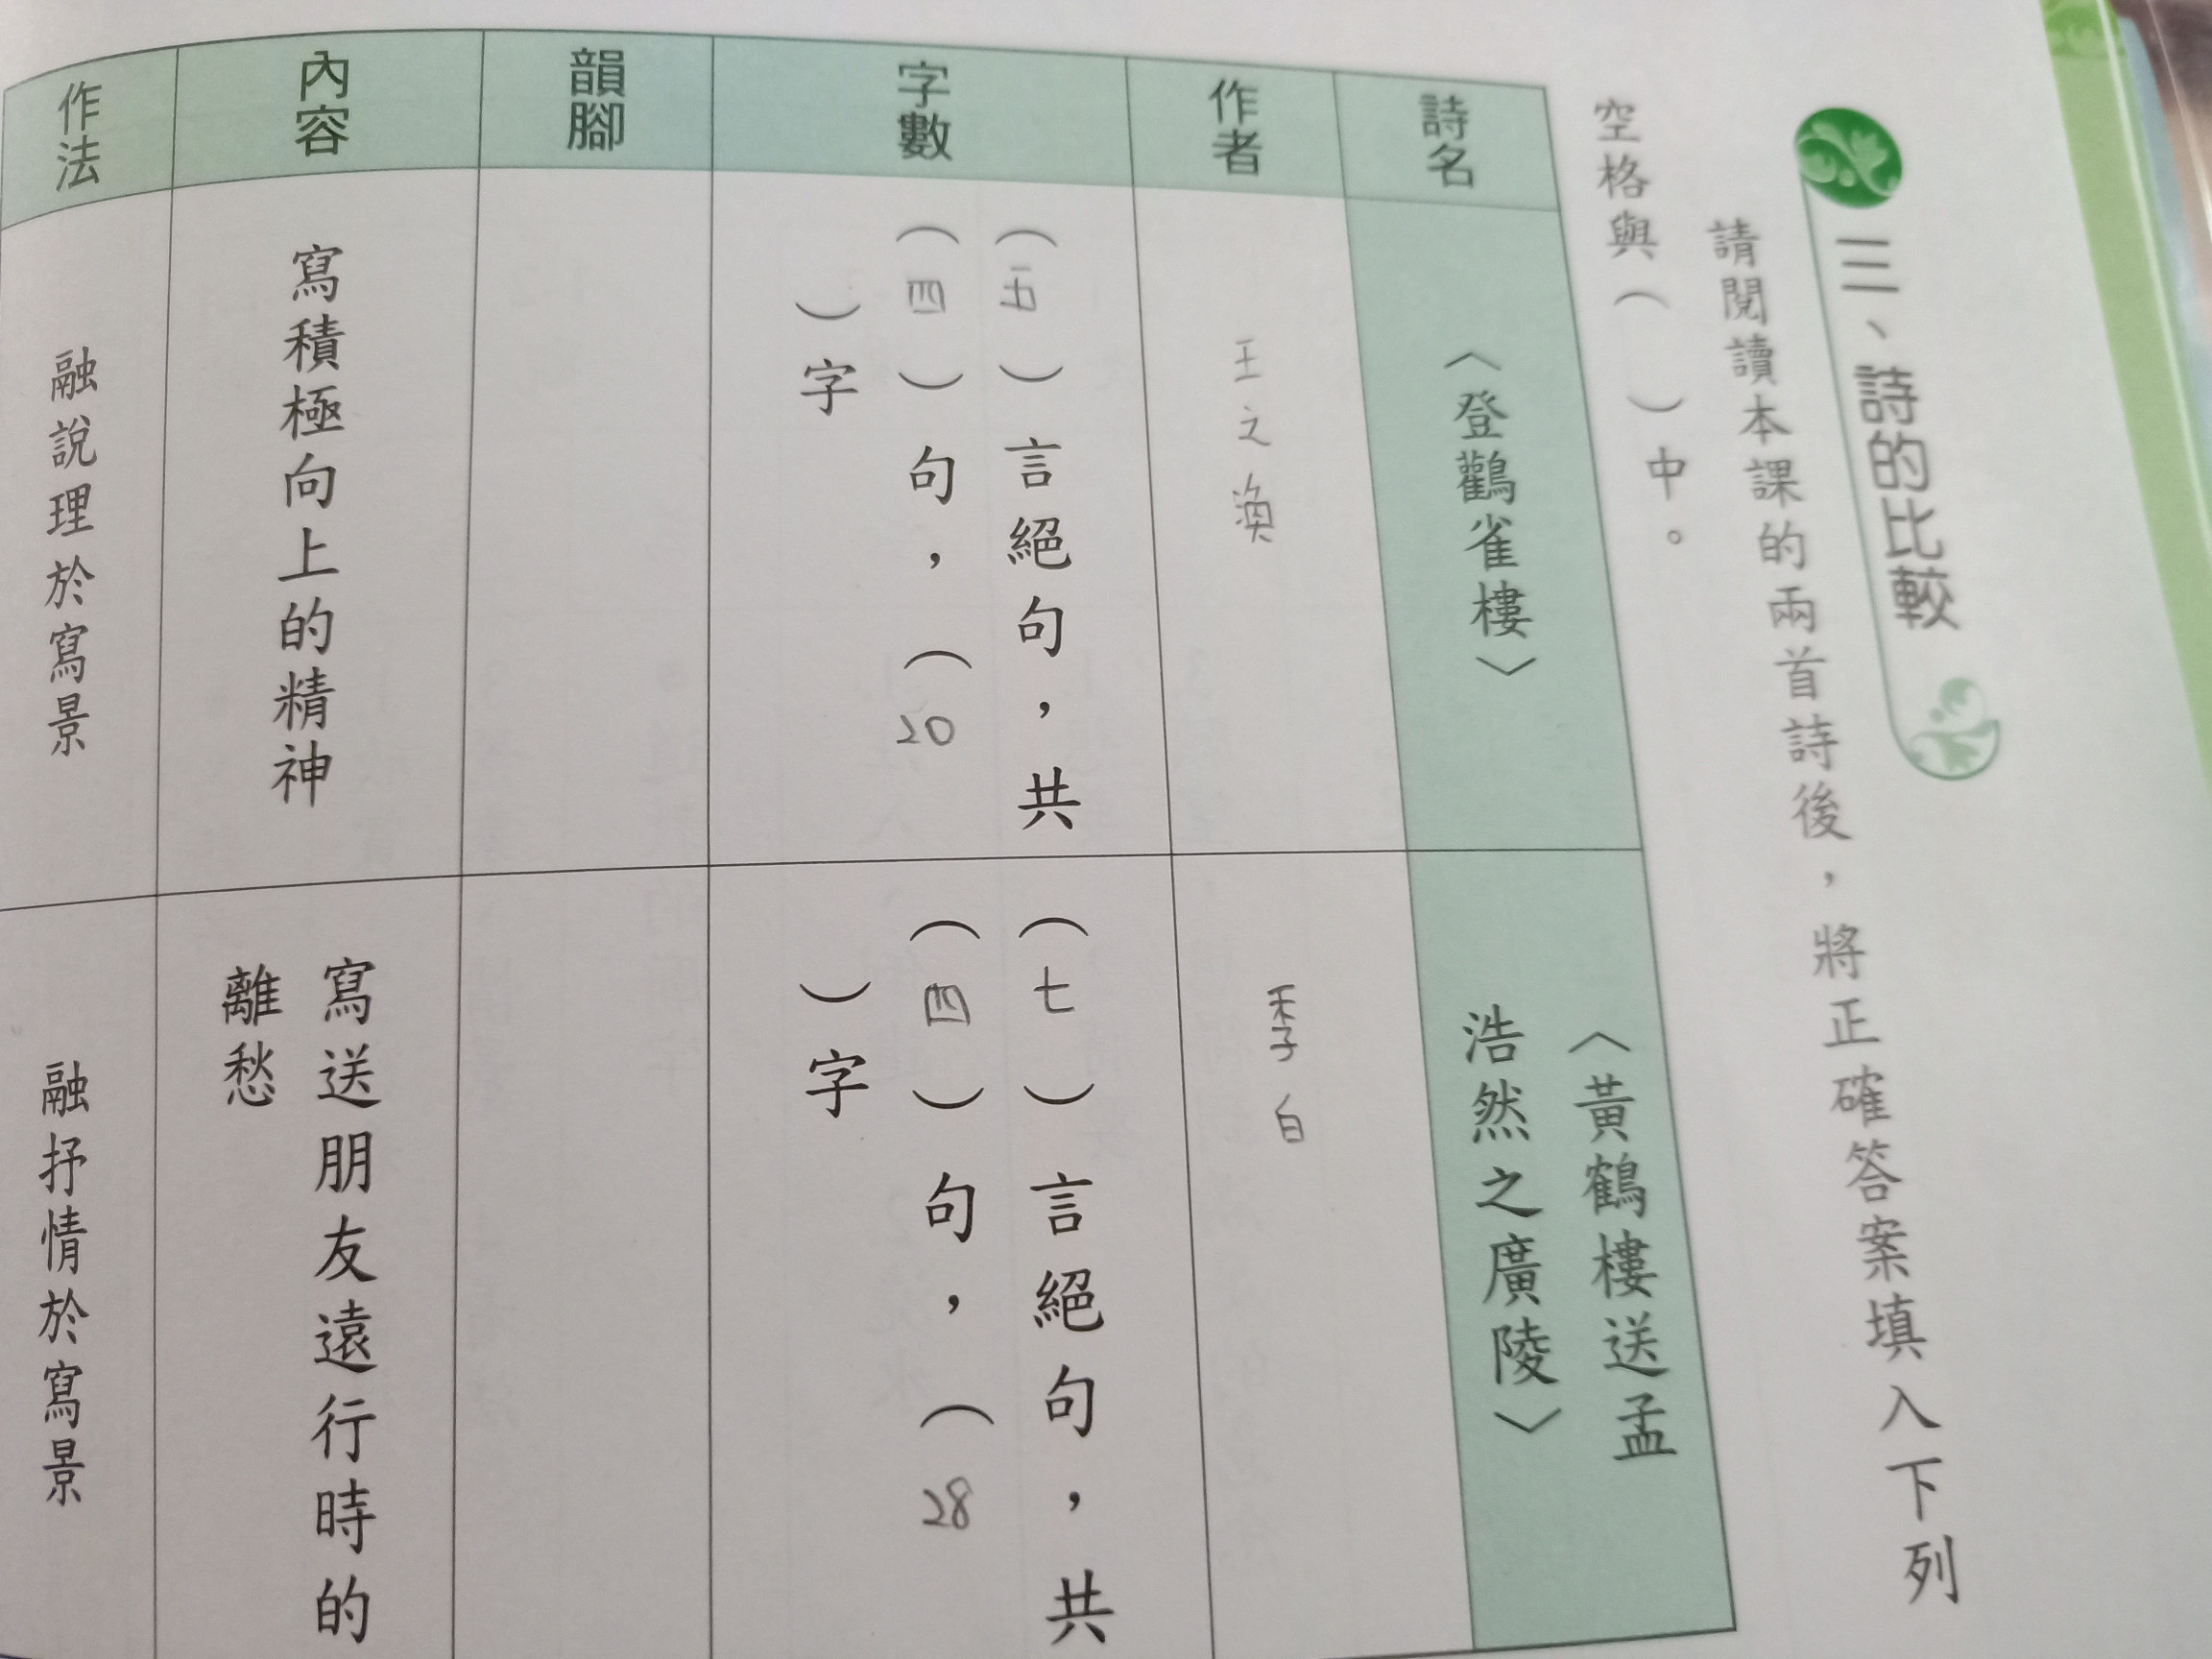 三、詩的比較
請閱讀本課的兩首詩後，將正確答案填入下列
空格與（　）中。
詩名
〈登鸛雀樓〉
〈黃鶴樓送孟
浩然之廣陵〉
作者
王之渙
李白
字數
（五）言絕句，共
（四）句，（20
）字
（七）言絕句，共
（四）句，（28
）字
韻腳
內容
寫積極向上的精神
寫送朋友遠行時的
離愁
作法
融說理於寫景
融抒情於寫景